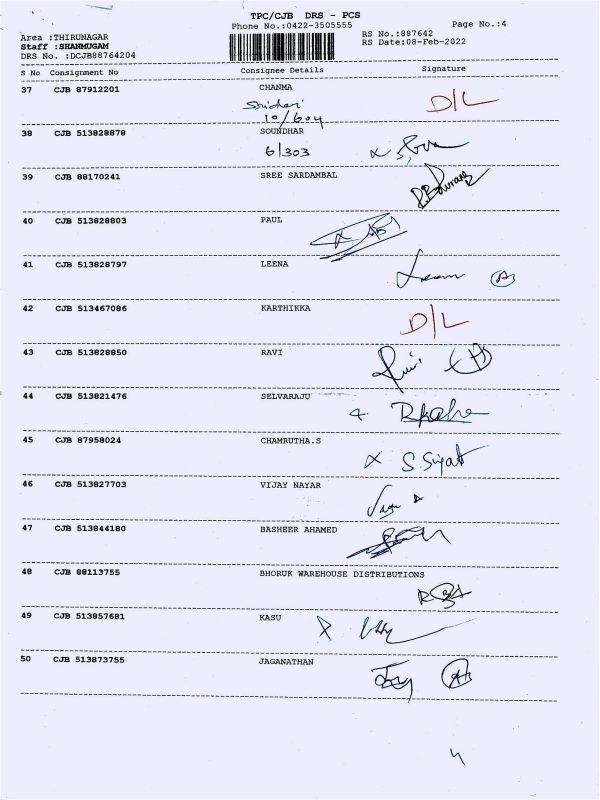 TPC/CJB DRS - PCS
Phone No.:0422-3505555 Page No.:4
Area :THIRUNAGAR RS No.:887642
Staff :SHANMUGAM RS Date:08-Feb-2022
DRS No. :DCJB88764204
S No Consignment No Consignee Details Signature
37 CJB 87912201 CHANMA
D/L
10/604
38 CJB 513828878 SOUNDHAR
6/303
39 CJB 88170241 SREE SARDAMBAL
40 CJB 513828803 PAUL
41 CJB 513828797 LEENA
42 CJB 513467086 KARTHIKKA
D/L
43 CJB 513828850 RAVI
44 CJB 513821476 SELVARAJU
45 CJB 87958024 CHAMRUTHA.S
46 CJB 513827703 VIJAY NAYAR
47 CJB 513844180 BASHEER AHAMED
48 CJB 88113755 BHORUK WAREHOUSE DISTRIBUTIONS
49 CJB 513857681 KASU
50 CJB 513873755 JAGANATHAN